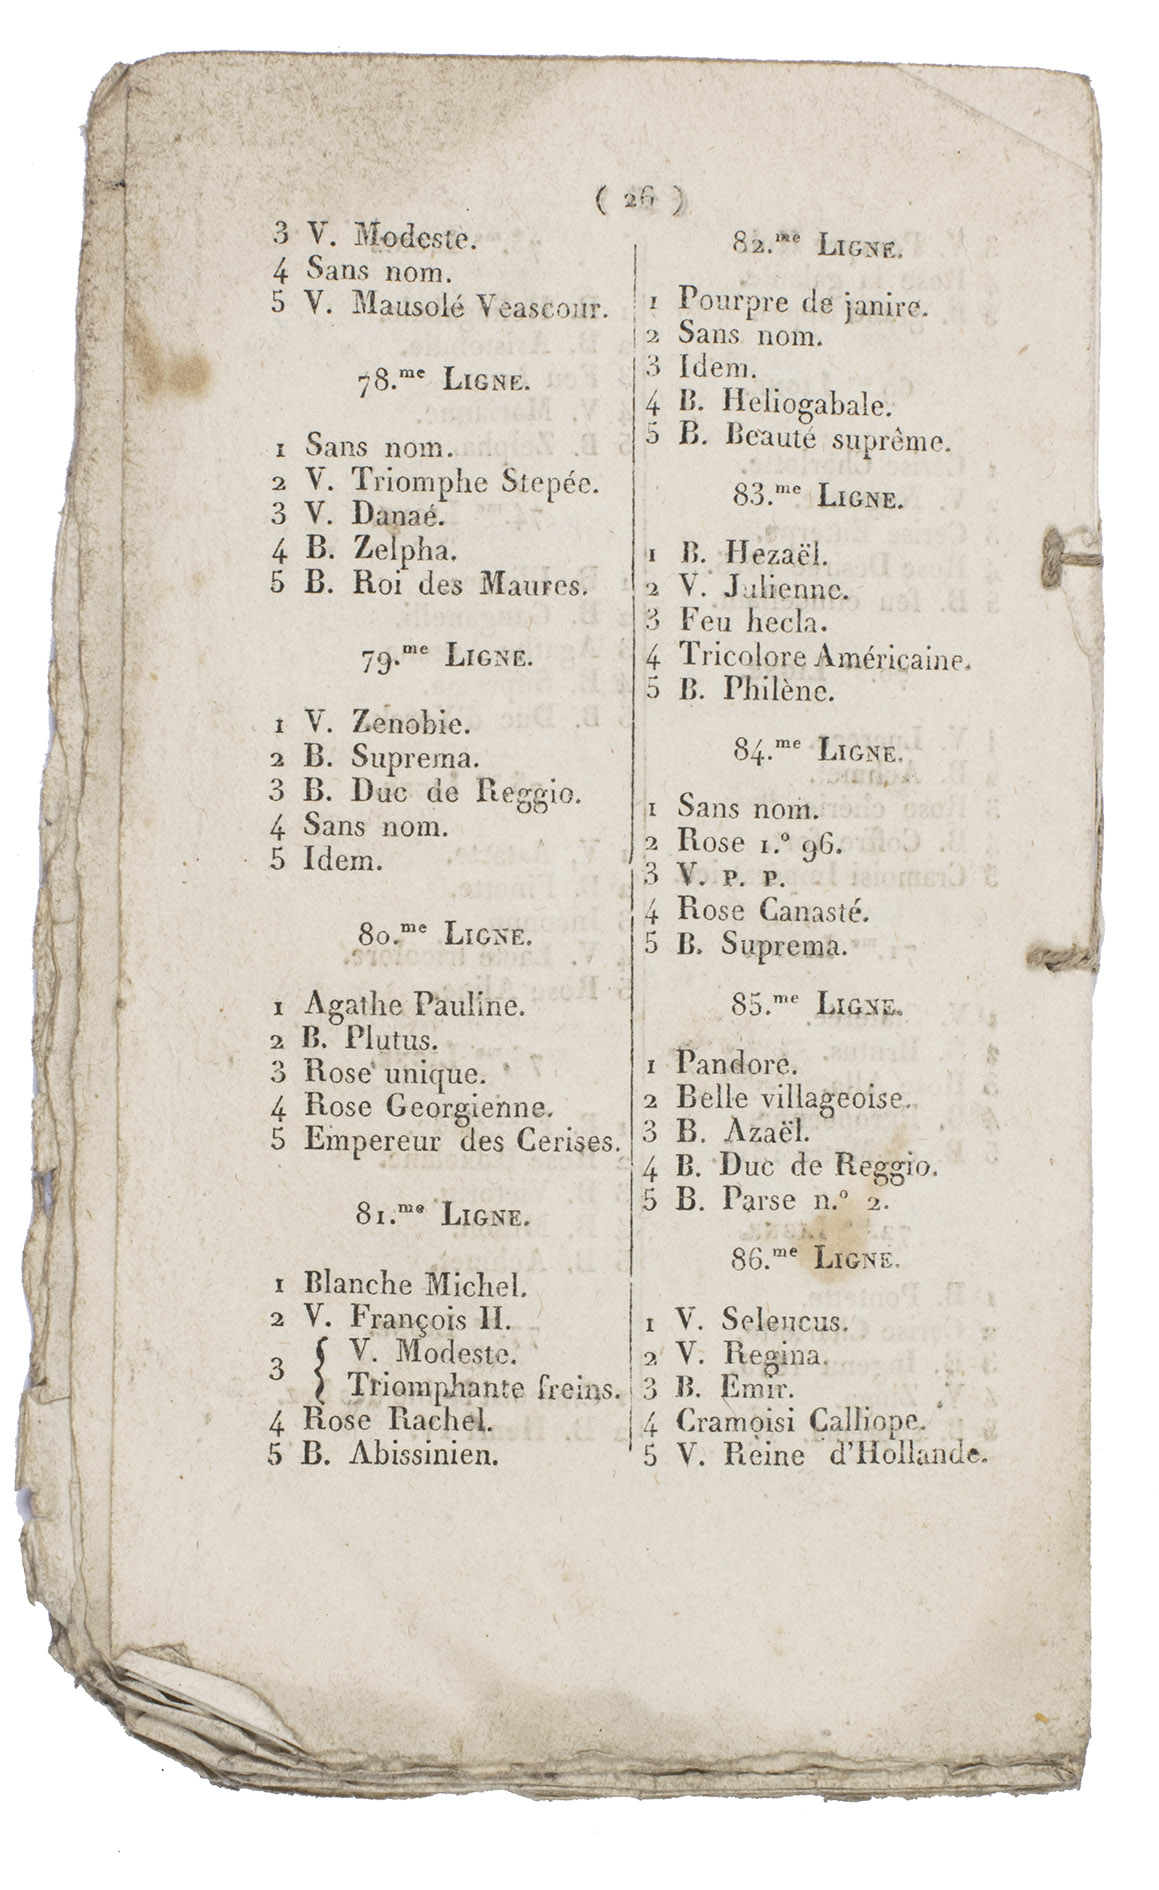 ( 26 )
3 V. Modeste.
4 Sans nom.
5 V. Mausolé Veascour.
78.me LIGNE.
1 Sans nom.
2 V. Triomphe Stepée.
3 V. Danaé.
4 B. Zelpha.
5 B. Roi des Maures.
79.me LIGNE.
1 V. Zenobie.
2 B. Suprema.
3 B. Duc de Reggio.
4 Sans nom.
5 Idem.
80.me LIGNE.
1 Agathe Pauline.
2 B. Plutus.
3 Rose unique.
4 Rose Georgienne.
5 Empereur des Cerises.
81.me LIGNE.
1 Blanche Michel.
2 V. François II.
3 { V. Modeste.
Triomphante freins.
4 Rose Rachel.
5 B. Abissinien.
82.me LIGNE.
1 Pourpre de janire.
2 Sans nom.
3 Idem.
4 B. Heliogabale.
5 B. Beauté suprême.
83.me LIGNE.
1 B. Hezaël.
2 V. Julienne.
3 Feu hecla.
4 Tricolore Américaine.
5 B. Philène.
84.me LIGNE.
1 Sans nom.
2 Rose 1.º 96.
3 V. P. P.
4 Rose Canasté.
5 B. Suprema.
85.me LIGNE.
1 Pandore.
2 Belle villageoise.
3 B. Azaël.
4 B. Duc de Reggio.
5 B. Parse n.º 2.
86.me LIGNE.
1 V. Seleucus.
2 V. Regina.
3 B. Emir.
4 Cramoisi Calliope.
5 V. Reine d'Hollande.